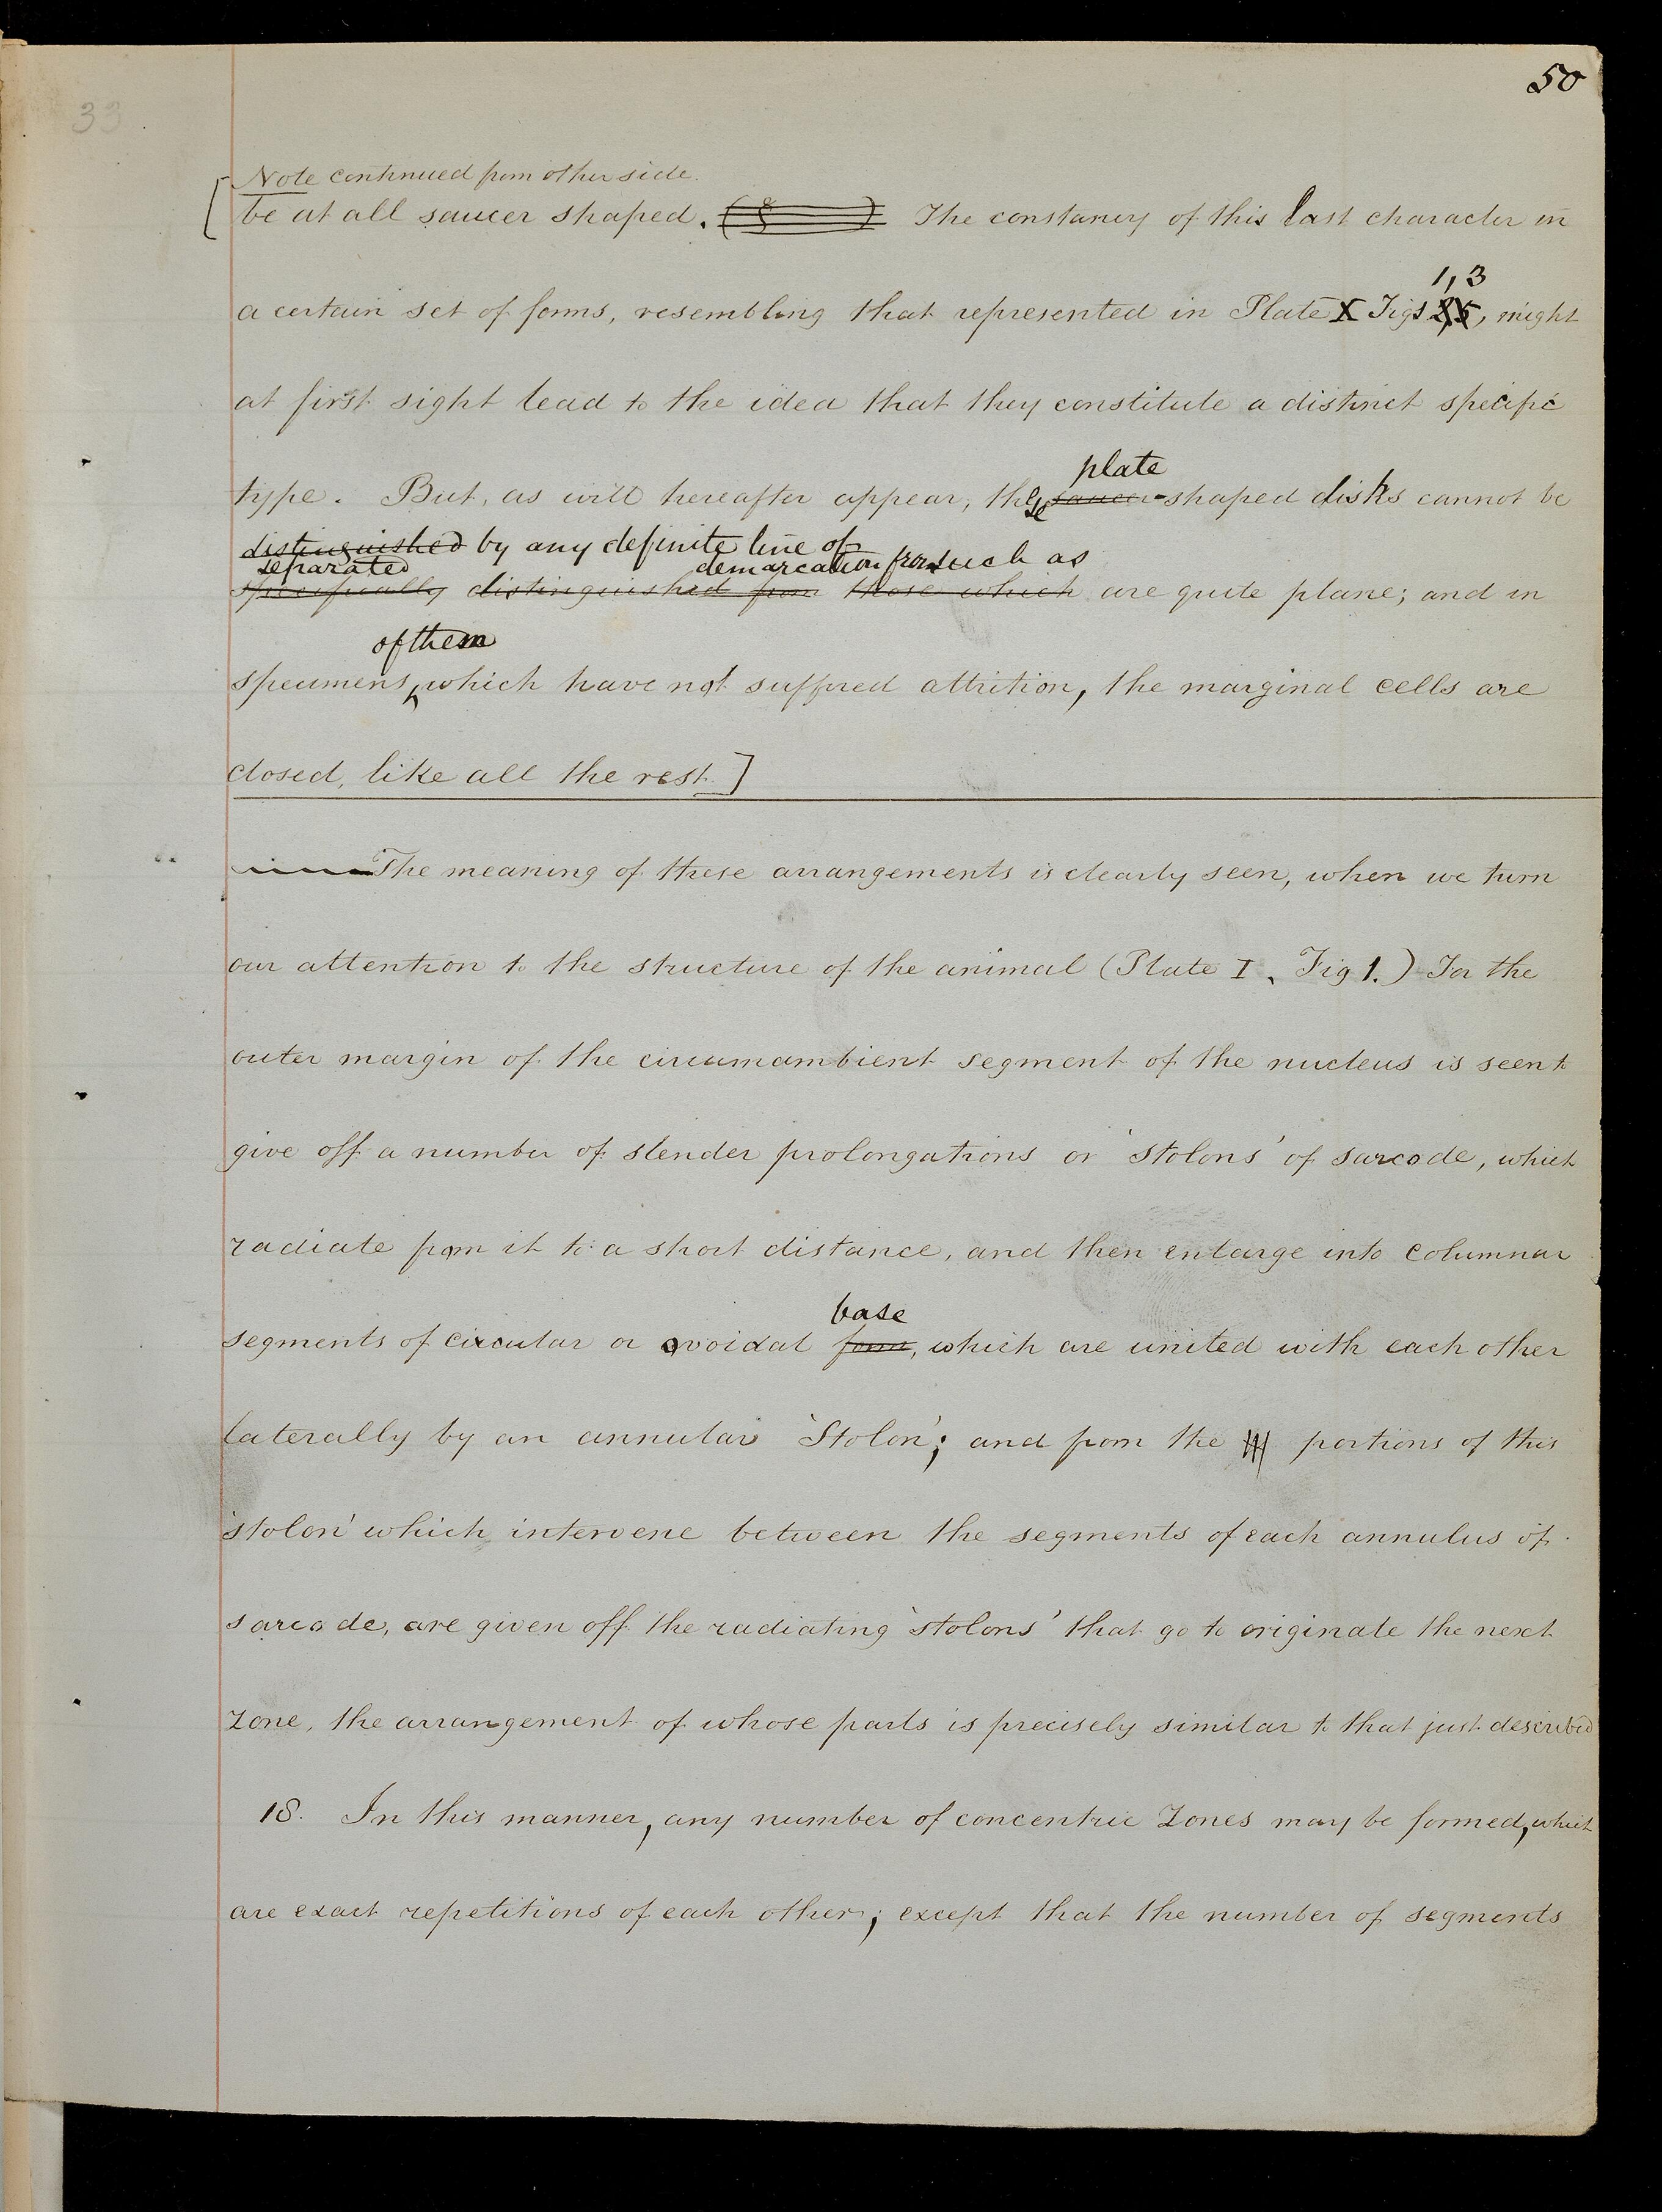 50
33
Note continued from other side.
[be at all saucer shaped. The constancy of this last character in
1, 3
a certain set of forms, resembling that represented in Plate X Figs 2,5, might
at first sight lead to the idea that they constitute a distinct specific
plate
type. But, as will hereafter appear, these saucer-shaped disks cannot be
distinguished by any definite line of
separated demarcation from such as
specifically distinguished from those which are quite plane; and in
of them
specimens, which have not suffered attrition, the marginal cells are
closed, like all the rest.]
The meaning of these arrangements is clearly seen, when we turn
our attention to the structure of the animal (Plate I, Fig 1.) For the
outer margin of the circumambient segment of the nucleus is seen to
give off a number of slender prolongations or 'stolons' of sarcode, which
radiate from it to a short distance, and then enlarge into columnar
base
segments of circular or ovoidal form, which are united with each other
laterally by an annular 'Stolon'; and from the portions of this
'stolon' which intervene between the segments of each annulus of
sarcode, are given off the radiating 'stolons' that go to originate the next
zone, the arrangement of whose parts is precisely similar to that just described
18. In this manner, any number of concentric zones may be formed, which
are exact repetitions of each other; except that the number of segments